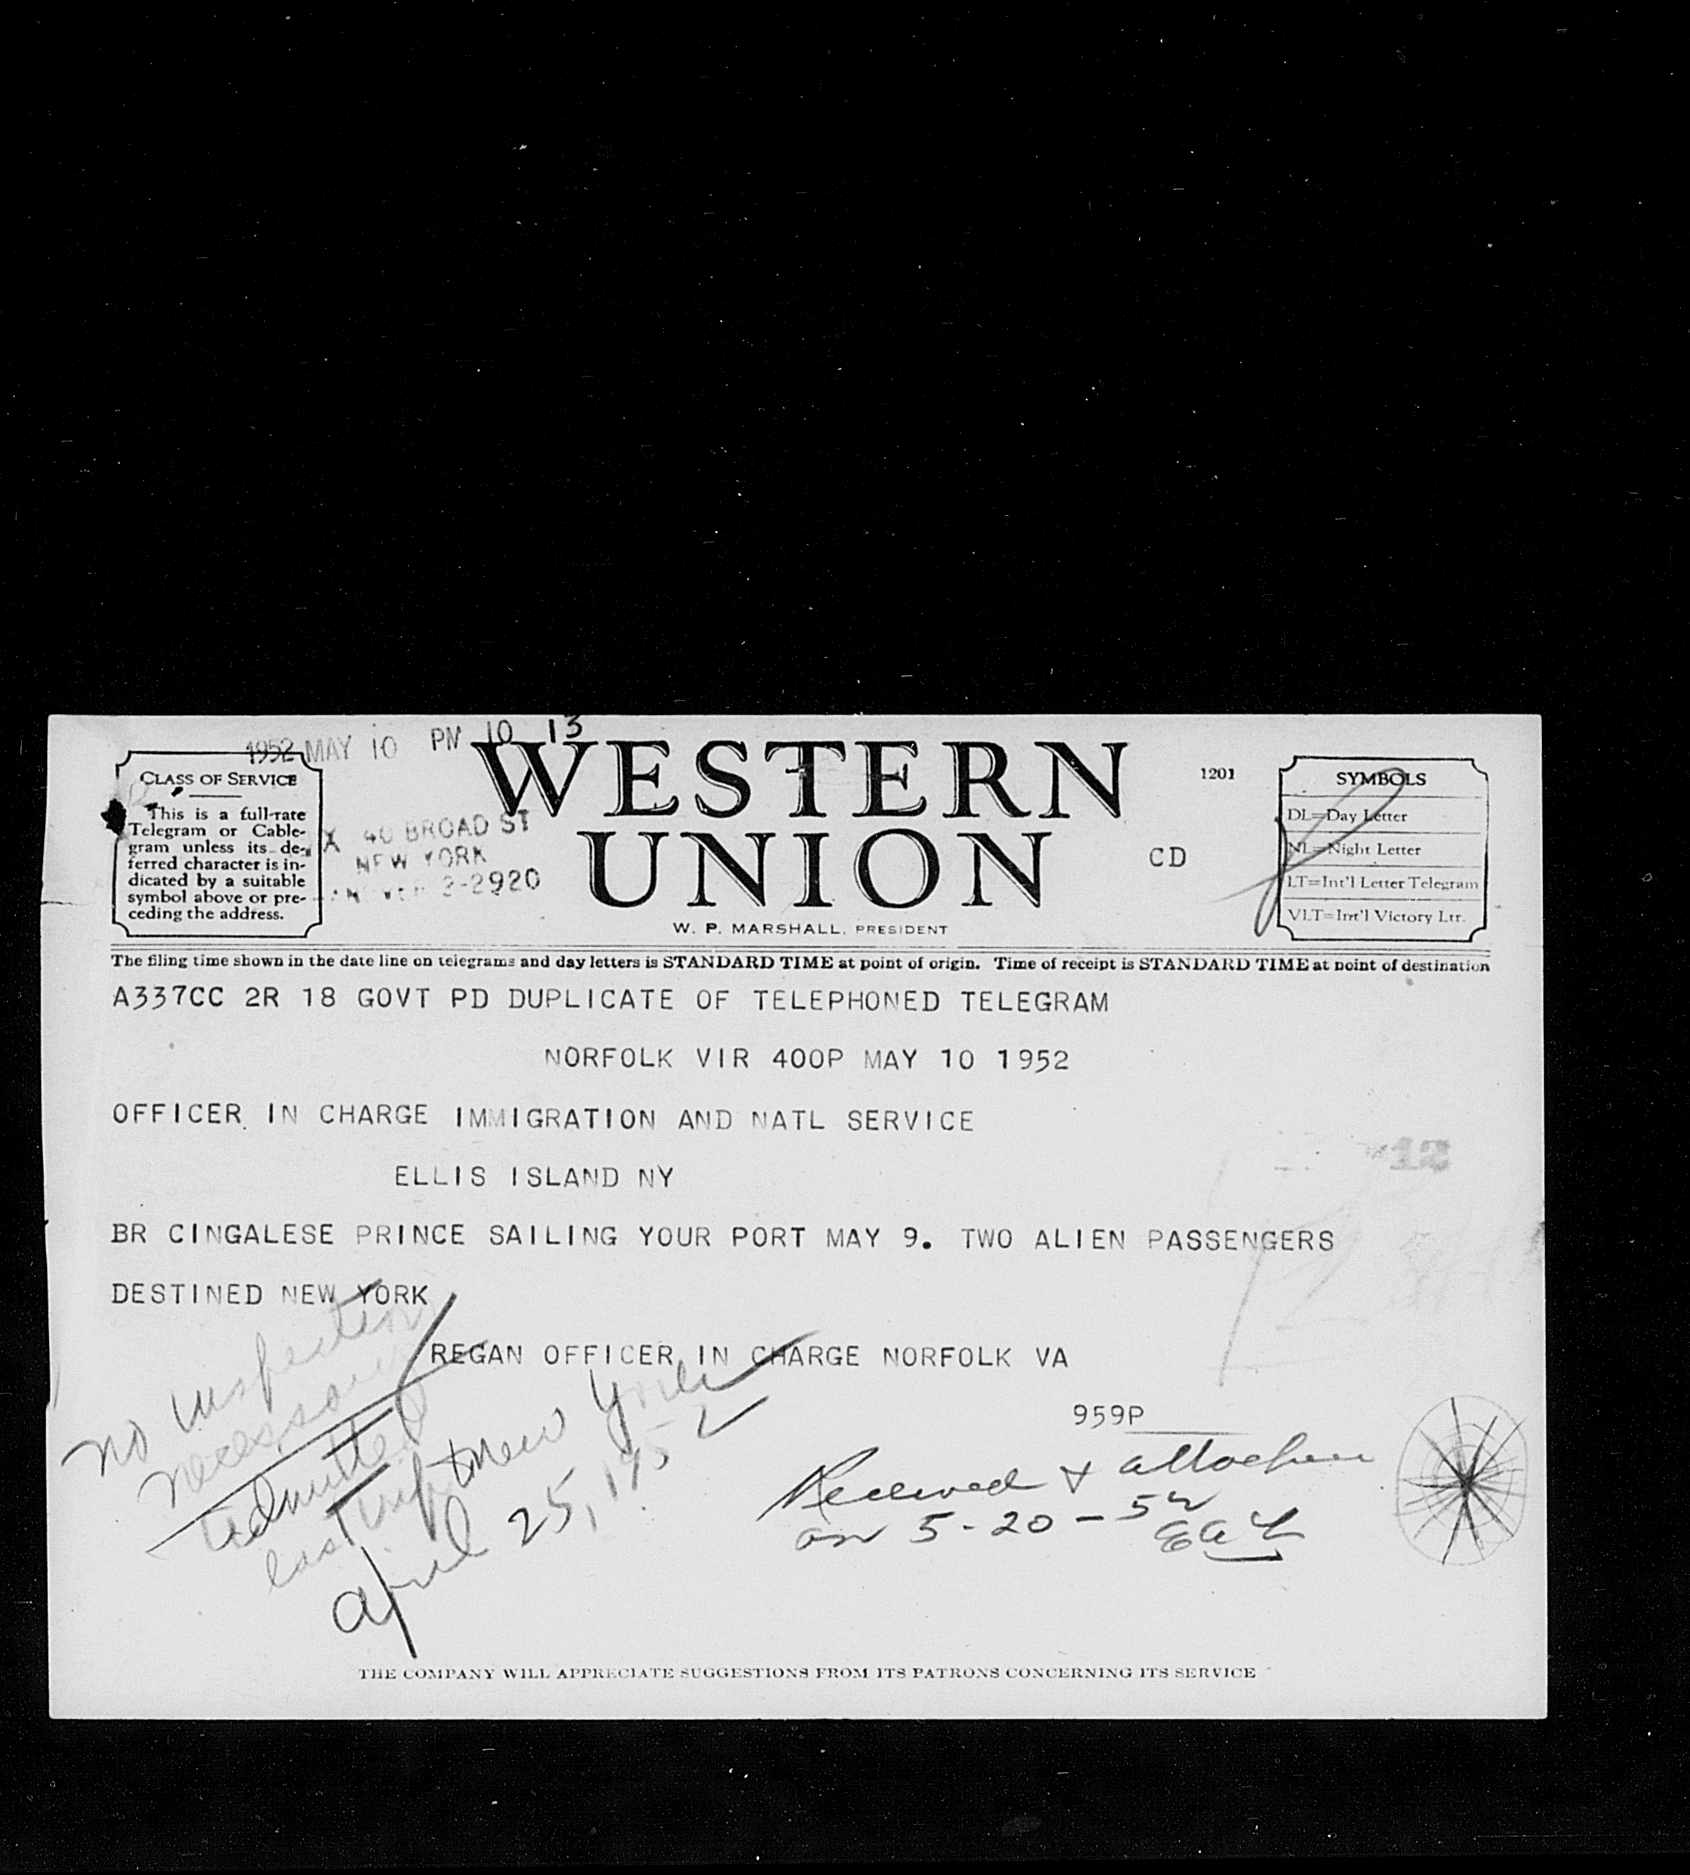 1952 MAY 10 PM 10 13
CLASS OF SERVICE
This is a full-rate
Telegram or Cable-
gram unless its de-
ferred character is in-
dicated by a suitable
symbol above or pre-
ceding the address.
40 BROAD ST
NEW YORK
2-2920
WESTERN
UNION
W. P. MARSHALL, PRESIDENT
1201
CD
SYMBOLS
DL=Day Letter
NL=Night Letter
LT=Int'l Letter Telegram
VLT=Int'l Victory Ltr.
The filing time shown in the date line on telegrams and day letters is STANDARD TIME at point of origin. Time of receipt is STANDARD TIME at point of destination
A337CC 2R 18 GOVT PD DUPLICATE OF TELEPHONED TELEGRAM
NORFOLK VIR 400P MAY 10 1952
OFFICER IN CHARGE IMMIGRATION AND NATL SERVICE
ELLIS ISLAND NY
12
BR CINGALESE PRINCE SAILING YOUR PORT MAY 9. TWO ALIEN PASSENGERS
DESTINED NEW YORK
REGAN OFFICER IN CHARGE NORFOLK VA
959P
no inspection
necessary
admitted
last trip New York
April 25, 1952
Received & attached
on 5-20-52
THE COMPANY WILL APPRECIATE SUGGESTIONS FROM ITS PATRONS CONCERNING ITS SERVICE